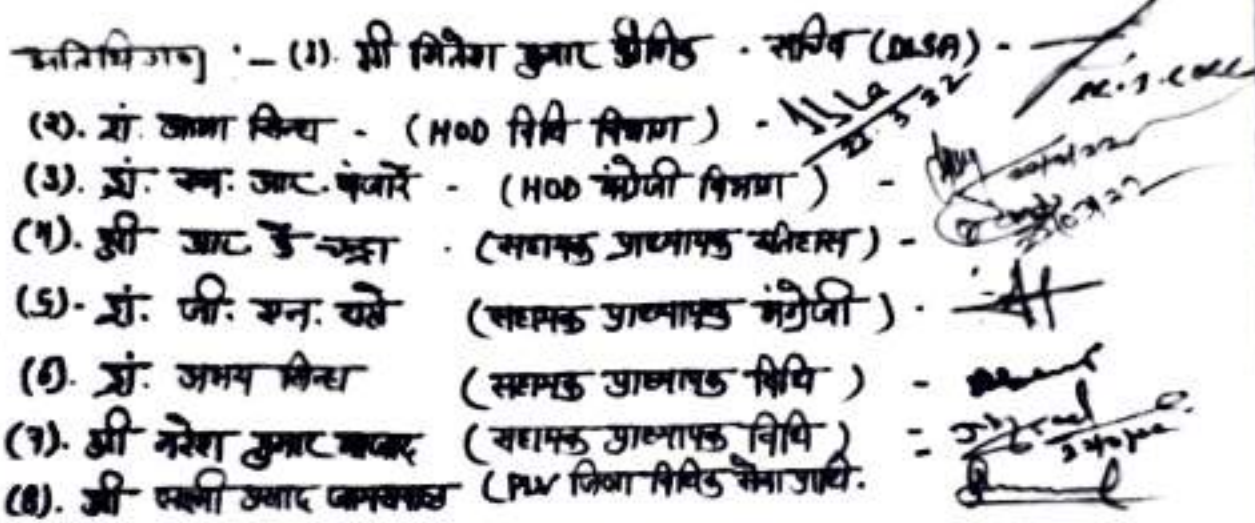 अतिथिगण :- (1). श्री जितेश कुमार कौशिक - सचिव (DLSA) -
(२). डॉ. आभा सिन्हा - (HOD विधि विभाग) - 22.3.22
(3). डॉ. एन. आर. बंजारे - (HOD अंग्रेजी विभाग) -
(4). श्री आर के चन्द्रा - (सहायक प्राध्यापक इतिहास) -
(5). डॉ. जी. एन. (सहायक प्राध्यापक अंग्रेजी) -
(6). डॉ. अभय सिन्हा (सहायक प्राध्यापक विधि) -
(7). श्री नरेश कुमार (सहायक प्राध्यापक विधि) -
(8). श्री प्रसाद जायसवाल (PLV जिला विधिक सेवा प्राधि.